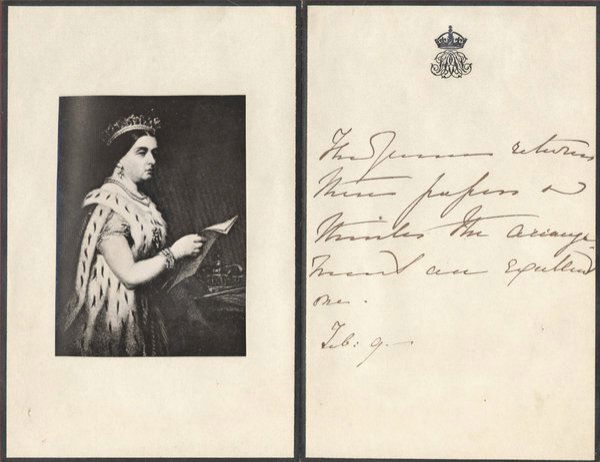 The Queen returns
these papers &
thinks the arrange-
ment an excellent
one.
Feb: 9.